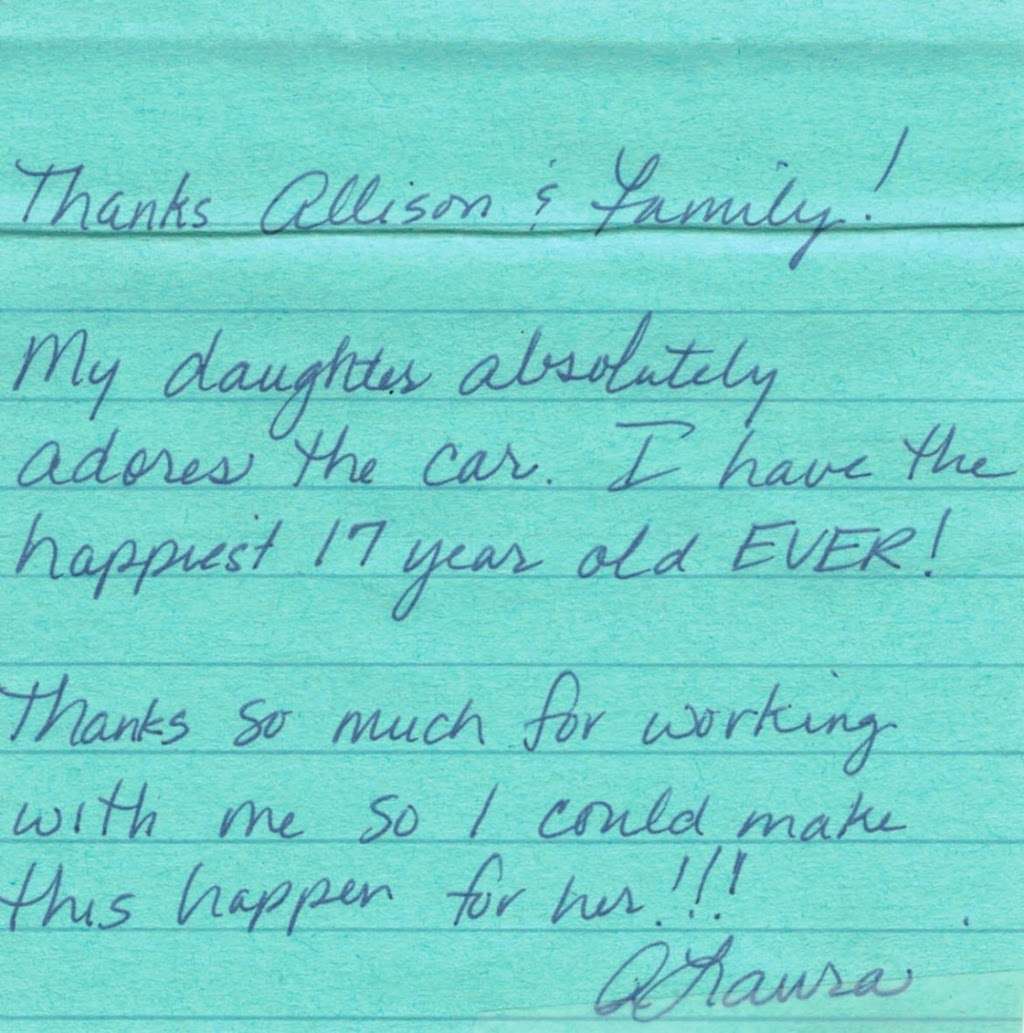 Thanks Allison & Family!
My daughter absolutely
adores the car. I have the
happiest 17 year old EVER!
Thanks so much for working
with me so I could make
this happen for her!!!
Laura